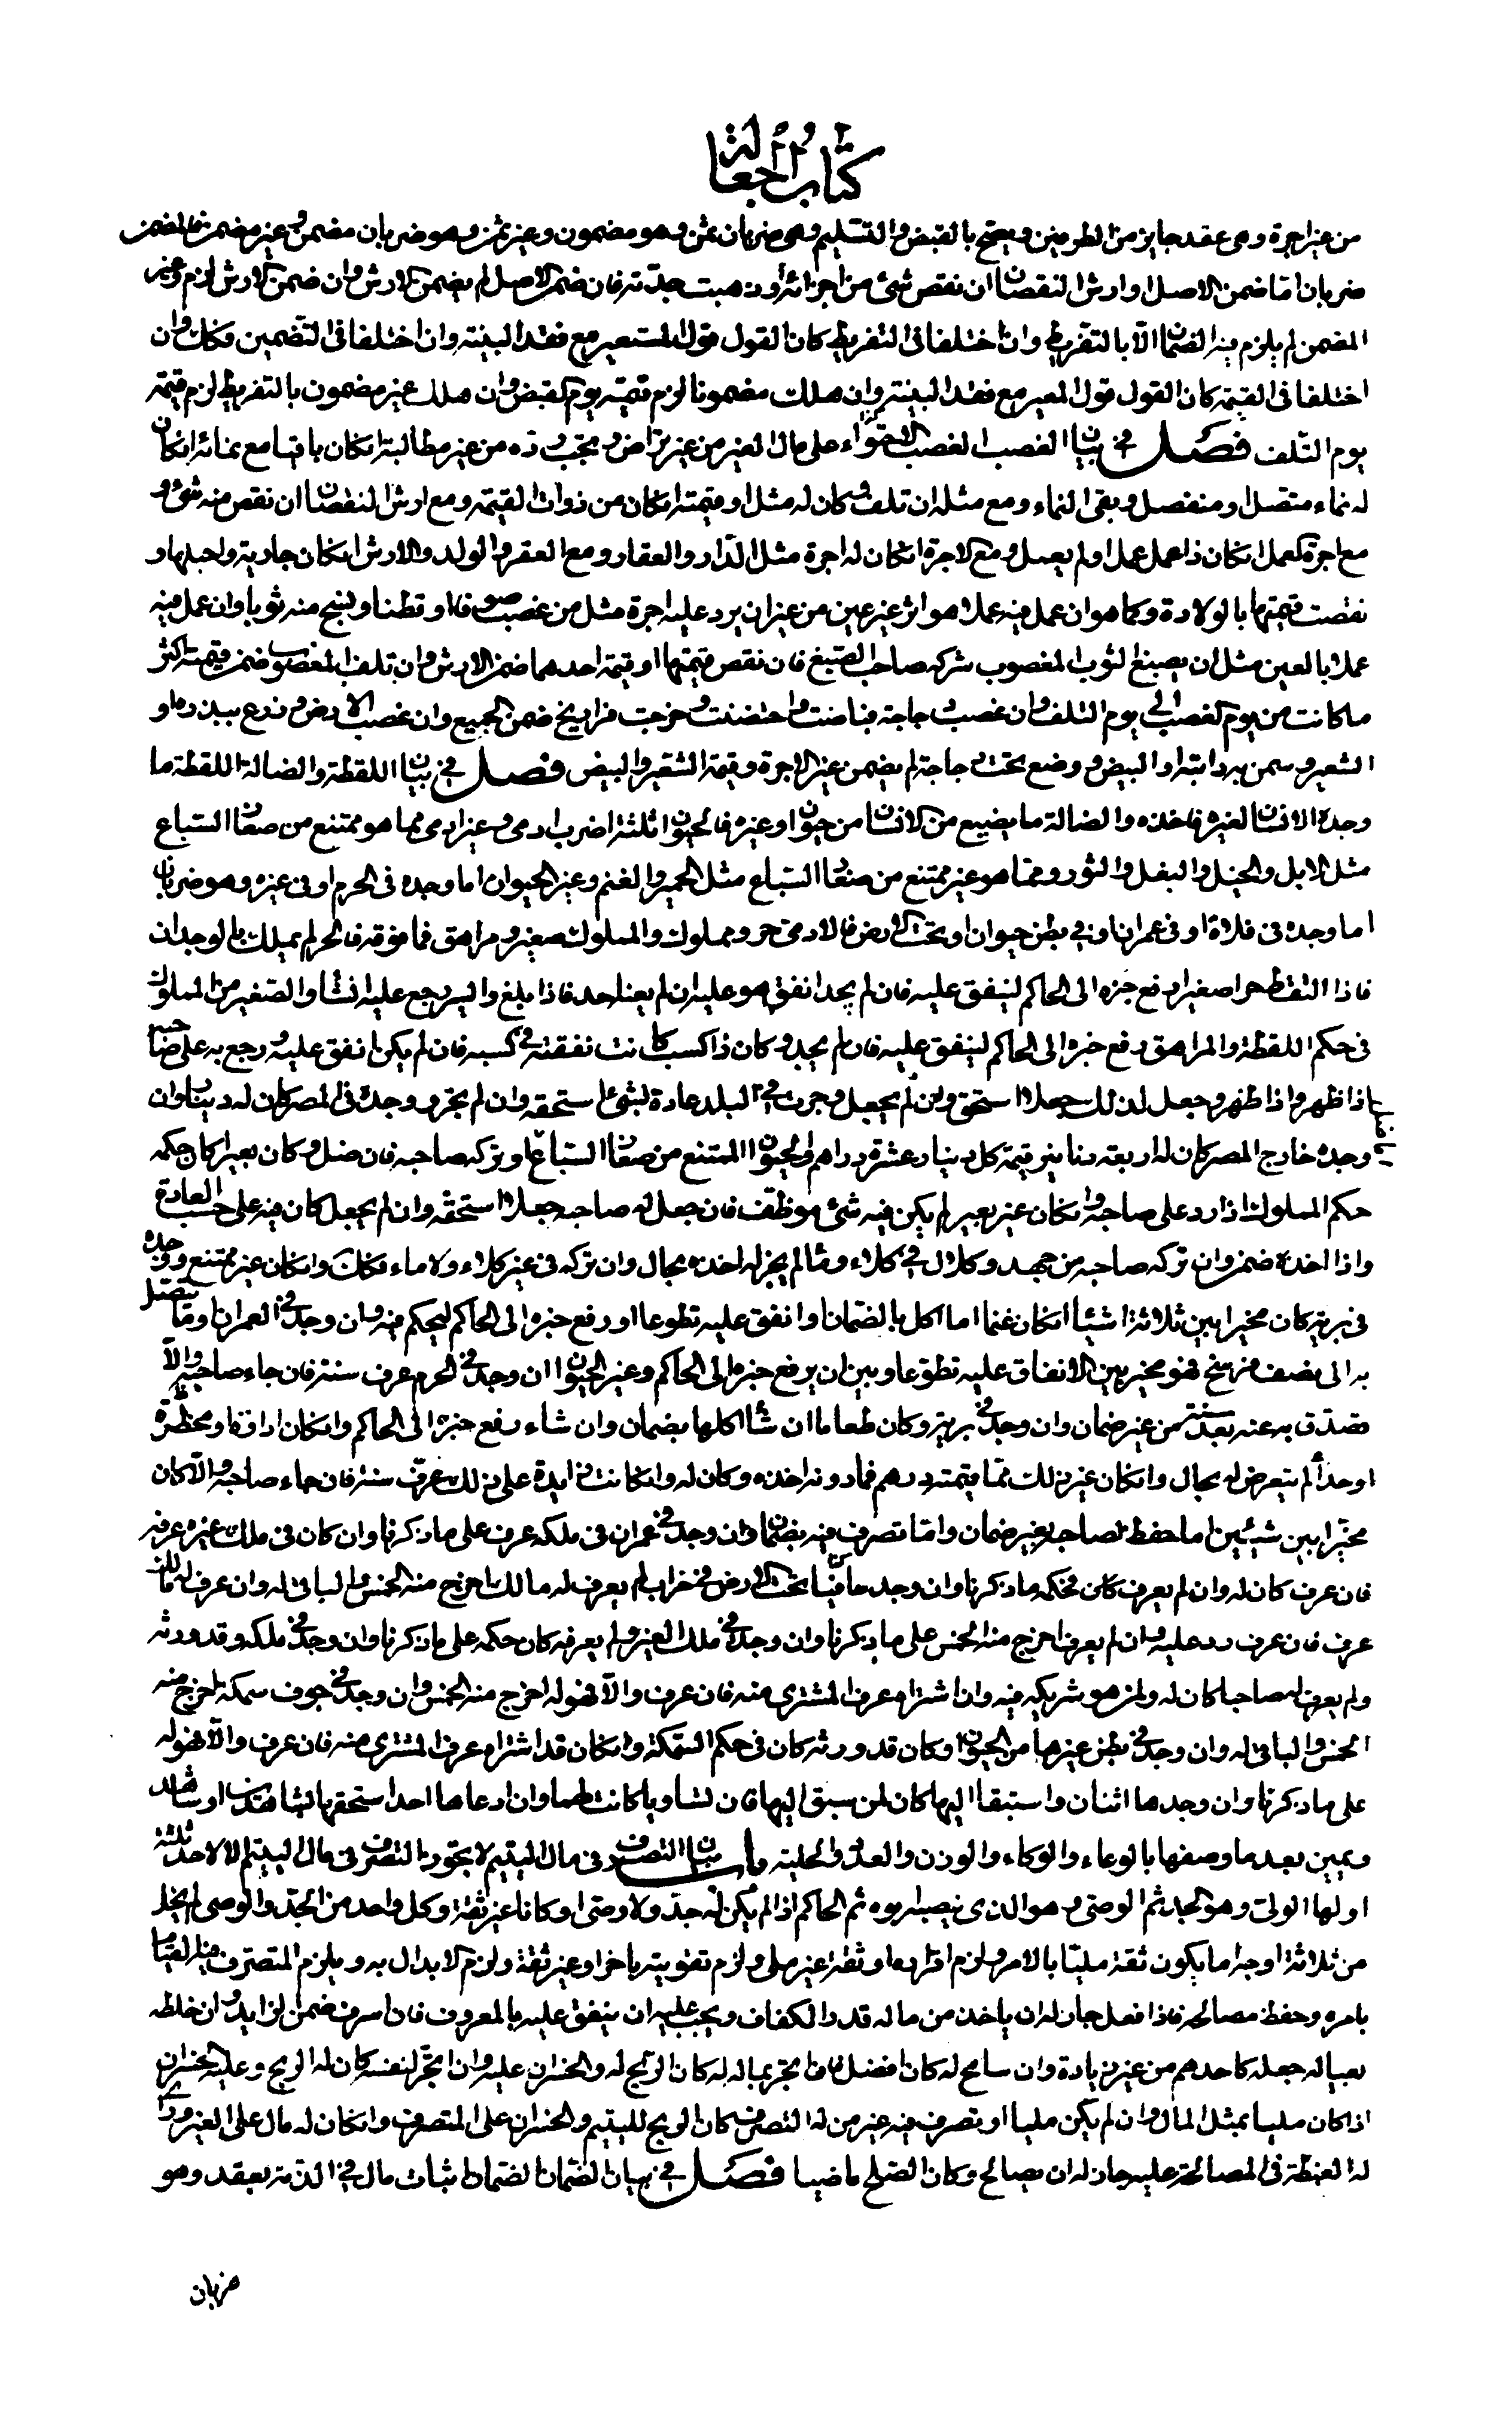 كتاب الجعالة
من غير اجرة وهى عقد جايز من الطرفين ويصح بالقبض والتسليم وهى ضربان ثمن وهو مضمون وغير ثمن وهو ضربان مضمن وغير مضمن فالمضمن
ضربان اما ضمن الاصل او ارش النقصان ان نقص شئ من اجزائه او ذهبت جدته فان ضمن الاصل لم يضمن الارش وان ضمن الارش لزم وغير
المضمن لم يلزم فيه الضمان الا بالتفريط وان اختلفا فى التفريط كان القول قول المستعير مع فقد البينة وان اختلفا فى التضمين فكذلك وان
اختلفا فى القيمة كان القول قول المعير مع فقد البينة وان هلك مضمونا لزم قيمته يوم القبض وان هلك غير مضمون بالتفريط لزم قيمته
يوم التلف فصل فى بيان الغصب الغصب الاحتواء على مال الغير من غير تراض ويجب رده من غير مطالبة ان كان باقيا مع نمائه ان كان
له نماء متصل او منفصل وبقى النماء ومع مثله ان تلف وكان له مثل او قيمته ان كان من ذوات القيمة ومع ارش النقصان ان نقص منه شئ و
مع اجرة العمل ان كان ذا عمل عمل او لم يعمل ومع الاجرة ان كان له اجرة مثل الدار والعقار ومع العقر والولد والارش ان كان جارية واحبلها و
نقصت قيمتها بالولادة وكما هو ان عمل فيه عملا هو اثر غير عين من غير ان يرد عليه اجرة مثل من غصب صوفا او قطنا ونسج منه ثوبا وان عمل فيه
عملا بالعين مثل ان يصبغ الثوب المغصوب شركه صاحب الصبغ فان نقص قيمتها او قيمة احدهما ضمن الارش وان تلف المغصوب ضمن قيمته اكثر
ما كانت من يوم الغصب الى يوم التلف وان غصب دجاجة فباضت واحتضنت وخرجت فراريخ ضمن الجميع وان غصب الارض وزرع ببذره او
الشعير وسمن به دابته او البيض ووضع تحت دجاجة لم يضمن غير الاجرة وقيمة الشعير والبيض فصل فى بيان اللقطة والضالة اللقطة ما
وجده الانسان لغيره فاخذه والضالة ما يضيع من الانسان من حيوان او غيره فالحيوان ثلثة اضرب ادمى وغير ادمى مما هو ممتنع من صغار السباع
مثل الابل والخيل والبغل والثور ومما هو غير ممتنع من صغار السباع مثل الحمير والغنم وغير الحيوان اما وجده فى الحرم او فى غيره وهو ضربان
اما وجده فى فلاة او فى عمران او فى بطن حيوان او تحت الارض فالادمى حر ومملوك والمملوك صغير ومراهق فما فوقه فالحر لم يملك بالوجدان
فاذا التقط حرا صغيرا رفع خبره الى الحاكم لينفق عليه فان لم يجد انفق هو عليه ان لم يعنه احد فاذا بلغ وايسر رجع عليه ان شاء والصغير من المملوك
فى حكم اللقطة والمراهق رفع خبره الى الحاكم لينفق عليه فان لم يجد وكان ذا كسب كانت نفقته فى كسبه فان لم يكن انفق عليه ورجع به على صاحبه
اذا ظهر واذا ظهر وجعل لذلك جعلا استحق وان لم يجعل وجرت فى البلد عادة لشئ استحقه وان لم يجر ووجده فى المصر كان له دينار وان
وجده خارج المصر كان له اربعة دنانير قيمة كل دينار عشرة دراهم والحيوان الممتنع من صغار السباع او تركه صاحبه فان ضل وكان بعيرا كان حكمه
حكم المملوك اذا رد على صاحبه وان كان غير بعير لم يكن فيه شئ موظف فان جعل له صاحبه جعلا استحقه وان لم يجعل كان فيه على حسب العادة
واذا اخذه ضمن وان تركه صاحبه من جهد وكلال فى كلاء وماء لم يجز له اخذه بحال وان تركه فى غير كلاء ولا ماء فكذلك وان كان غير ممتنع ووجده
فى برية كان مخيرا بين ثلاثة اشياء ان كان غنما اما اكل بالضمان او انفق عليه تطوعا او رفع خبره الى الحاكم ليحكم فيه وان وجد فى العمران وما يتصل
به الى نصف فرسخ فهو مخير بين الانفاق عليه تطوعا وبين ان يرفع خبره الى الحاكم وغير الحيوان ان وجد فى الحرم عرف سنة فان جاء صاحبه والا
تصدق به عنه بعد سنة من غير ضمان وان وجد فى برية وكان طعاما ان شاء اكلها بضمان وان شاء رفع خبره الى الحاكم وان كان اداوة او مخطرة
او حذاء لم يتعرض له بحال وان كان غير ذلك مما قيمته درهم فما دونه اخذه وكان له وان كانت زايدة على ذلك عرف سنة فان جاء صاحبه والا كان
مخيرا بين شيئين اما حفظ لصاحبه بغير ضمان واما تصرف فيه بضمان وان وجد فى عمران فى ملكه عرف على ما ذكرنا وان كان فى ملك غيره عرفه
فان عرف كان له وان لم يعرف كان حكمه ما ذكرنا وان وجد تحت الارض فى خراب لم يعرف له مالك اخرج منه الخمس والباقى له وان عرف له مالك
عرف فان عرف رد عليه وان لم يعرف اخرج منه الخمس على ما ذكرنا وان وجد فى ملك الغير ولم يعرفه كان حكمه على ما ذكرنا وان وجد فى ملكه وقد ورثه
ولم يعرف له صاحبا كان له ولمن هو شريكه فيه وان اشتراه عرف المشترى منه فان عرف والا فهو له اخرج منه الخمس وان وجد فى جوف سمكة اخرج منه
الخمس والباقى له وان وجد فى بطن غيرها من الحيوان وكان قد ورثه كان فى حكم السمكة وان كان قد اشتراه عرف المشترى منه فان عرف والا فهو له
على ما ذكرنا وان وجدها اثنان واستبقا اليها كان لمن سبق اليها فان تساويا كانت لهما وان ادعاها احد استحقها بالشاهدين او شاهد
ويمين بعد ما وصفها بالوعاء والوكاء والوزن والعدد والحلية باب بيان التصرف فى مال اليتيم لا يجوز التصرف فى مال اليتيم الا لاحد ثلثة
اولها الولى وهو الجد ثم الوصى وهو الذى ينصبه ابوه ثم الحاكم اذا لم يكن له جد ولا وصى او كانا غير ثقة وكل واحد من الجد والوصى لم يخل
من ثلاثة اوجه اما يكون ثقة مليا بالامر ولزم اقراره او ثقة غير ملى ولزم تقويته باخر او غير ثقة ولزم الابدال به ويلزم المتصرف فيه القيام
بامره وحفظ مصالحه فاذا فعل جاز له ان ياخذ من ماله قدر الكفاف ويجب عليه ان ينفق عليه بالمعروف فان اسرف ضمن الزايد وان خلطه
بعياله جعله كاحدهم من غير زيادة وان سامح له كان افضل فان اتجر بماله له كان الربح له والخسران عليه وان اتجر لنفسه كان له الربح وعليه الخسران
اذا كان مليا بمثل المال وان لم يكن مليا او تصرف فيه غير من له التصرف كان الربح لليتيم والخسران على المتصرف وان كان له مال على الغير وراى
له الغبطة فى المصالحة عليه جاز له ان يصالح وكان الصلح ماضيا فصل فى بيان الضمان الضمان اثبات مال فى الذمة بعقد وهو
ضربان